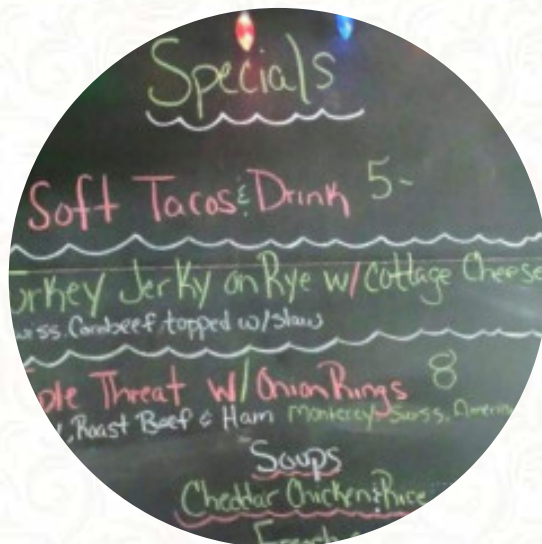 Specials
Soft Tacos & Drink 5-
urkey Jerky on Rye w/Cottage Cheese
iss Cornbeef topped w/slaw
ple Threat w/ Onion Rings 8
, Roast Beef & Ham Monterey, Swiss, Americ
Soups
Cheddar Chicken & Rice
French